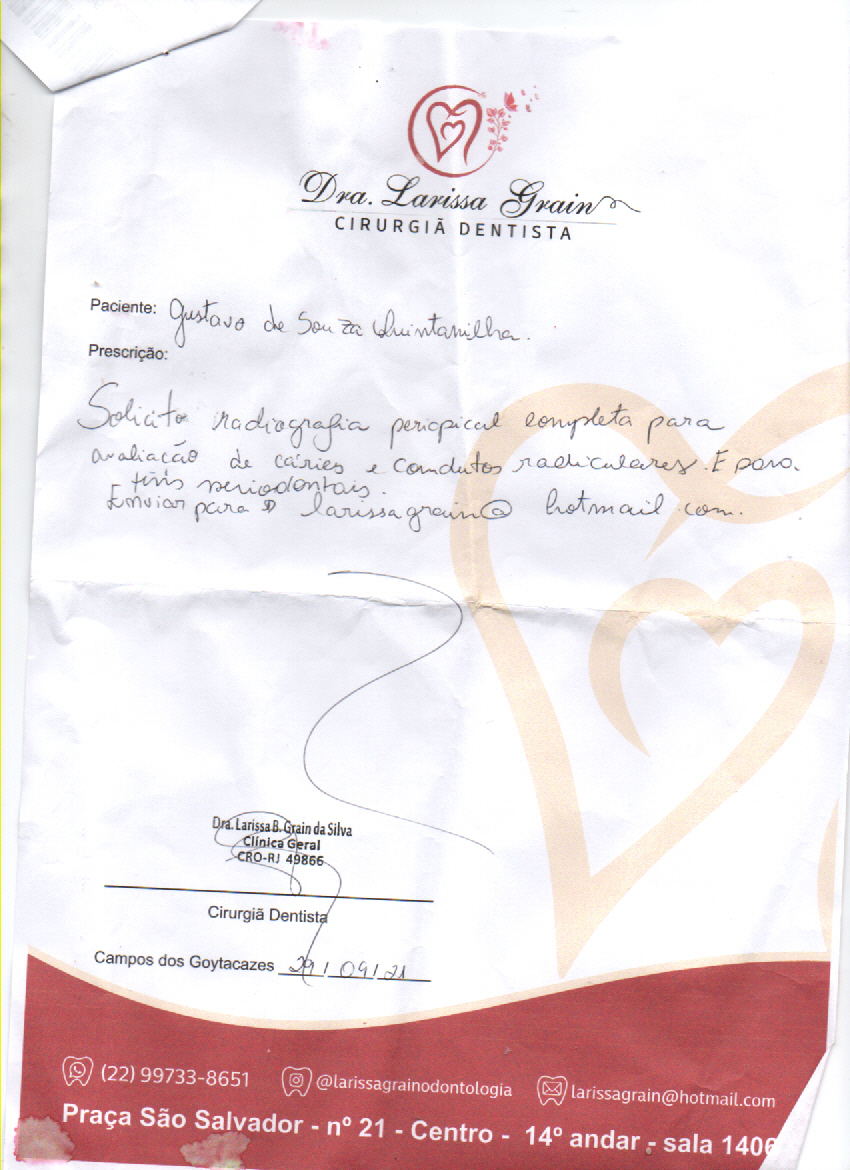 Dra. Larissa Grain
CIRURGIÃ DENTISTA
Paciente: Gustavo de Souza Quintanilha.
Prescrição:
Solicito radiografia periapical completa para
avaliação de cáries e condutos radiculares. E para
fins periodontais.
Enviar para larissagrain@hotmail.com.
Dra. Larissa B. Grain da Silva
Clínica Geral
CRO-RJ 49866
Cirurgiã Dentista
Campos dos Goytacazes 29/09/21
(22) 99733-8651 @larissagrainodontologia larissagrain@hotmail.com
Praça São Salvador - nº 21 - Centro - 14º andar - sala 1406